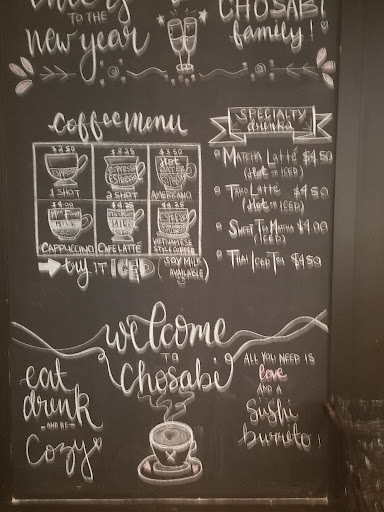 TO THE
new year
CHOSABI
family!
Coffee menu
$2.50
ESPRESSO
1 SHOT
$3.25
ESPRESSO
ESPRESSO
2 SHOT
$3.50
Hot
WATER
AMERICANO
$4.00
CAPPUCCINO
$4.25
CAFE LATTE
$4.25
ESPRESSO
VIETNAMESE
STYLE COFFEE
try IT ICED (SOY MILK
AVAILABLE)
SPECIALTY
drinks
MATCHA LATTÉ $4.50
(HOT or ICED)
TARO LATTÉ $4.50
(HOT or ICED)
SWEET TEA MATCHA $4.00
(ICED)
THAI ICED TEA $4.50
welcome
TO
Chosabi
eat
drink
AND BE
Cozy
ALL YOU NEED IS
love
AND A
Sushi
burrito!